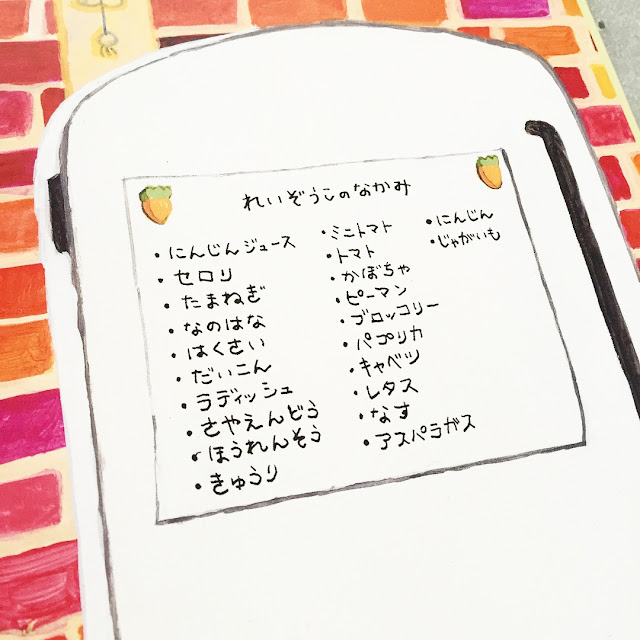 れいぞうこのなかみ
・にんじんジュース
・セロリ
・たまねぎ
・なのはな
・はくさい
・だいこん
・ラディッシュ
・さやえんどう
・ほうれんそう
・きゅうり
・ミニトマト
・トマト
・かぼちゃ
・ピーマン
・ブロッコリー
・パプリカ
・キャベツ
・レタス
・なす
・アスパラガス
・にんじん
・じゃがいも